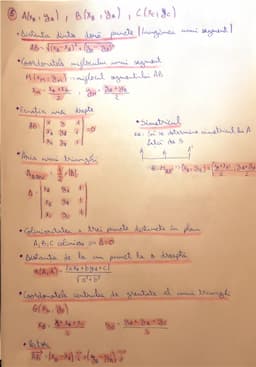 ② A(xA, yA) , B(xB, yB) , C(xC, yC)
• Distanța dintre două puncte (lungimea unui segment)
AB = √(xB - xA)² + (yB - yA)²
• Coordonatele mijlocului unui segment
M(xM, yM) - mijlocul segmentului AB
xM = xA + xB / 2 , yM = yA + yB / 2
• Ecuația unei drepte
AB: | x y 1 |
| xA yA 1 | = 0
| xB yB 1 |
• Simetricul
ex: Să se determine simetricul lui A față de B
A B A'
• Aria unui triunghi
AΔABC = 1/2 · |Δ|
Δ = | xA yA 1 |
| xB yB 1 |
| xC yC 1 |
• Coliniaritatea a trei puncte distincte în plan
A, B, C coliniare ⇔ Δ = 0
• Distanța de la un punct la o dreaptă
|axA + byA + c|
√a² + b²
• Coordonatele centrului de greutate al unui triunghi
G(xG, yG)
xG = xA + xB + xC / 3 yG = yA + yB + yC / 3
• Vectori
AB = (xB - xA) i + (yB - yA) j